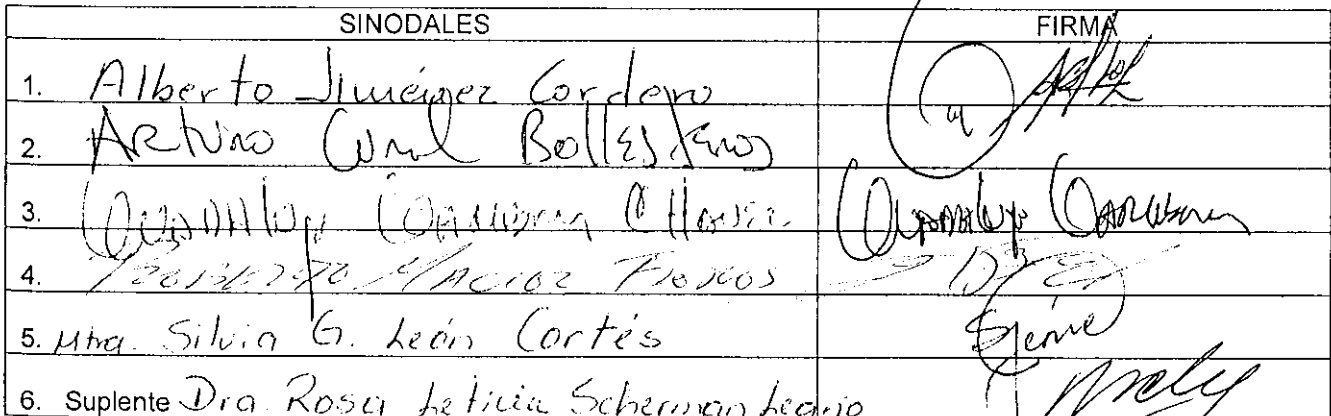 SINODALES FIRMA
1. Alberto Jiménez Cordero
2. Arturo Curiel Ballesteros
3. Guadalupe Garibay Chávez Guadalupe Garibay
4. Macias
5. Mtra. Silvia G. León Cortés
6. Suplente Dra. Rosa Leticia Scherman Leaño